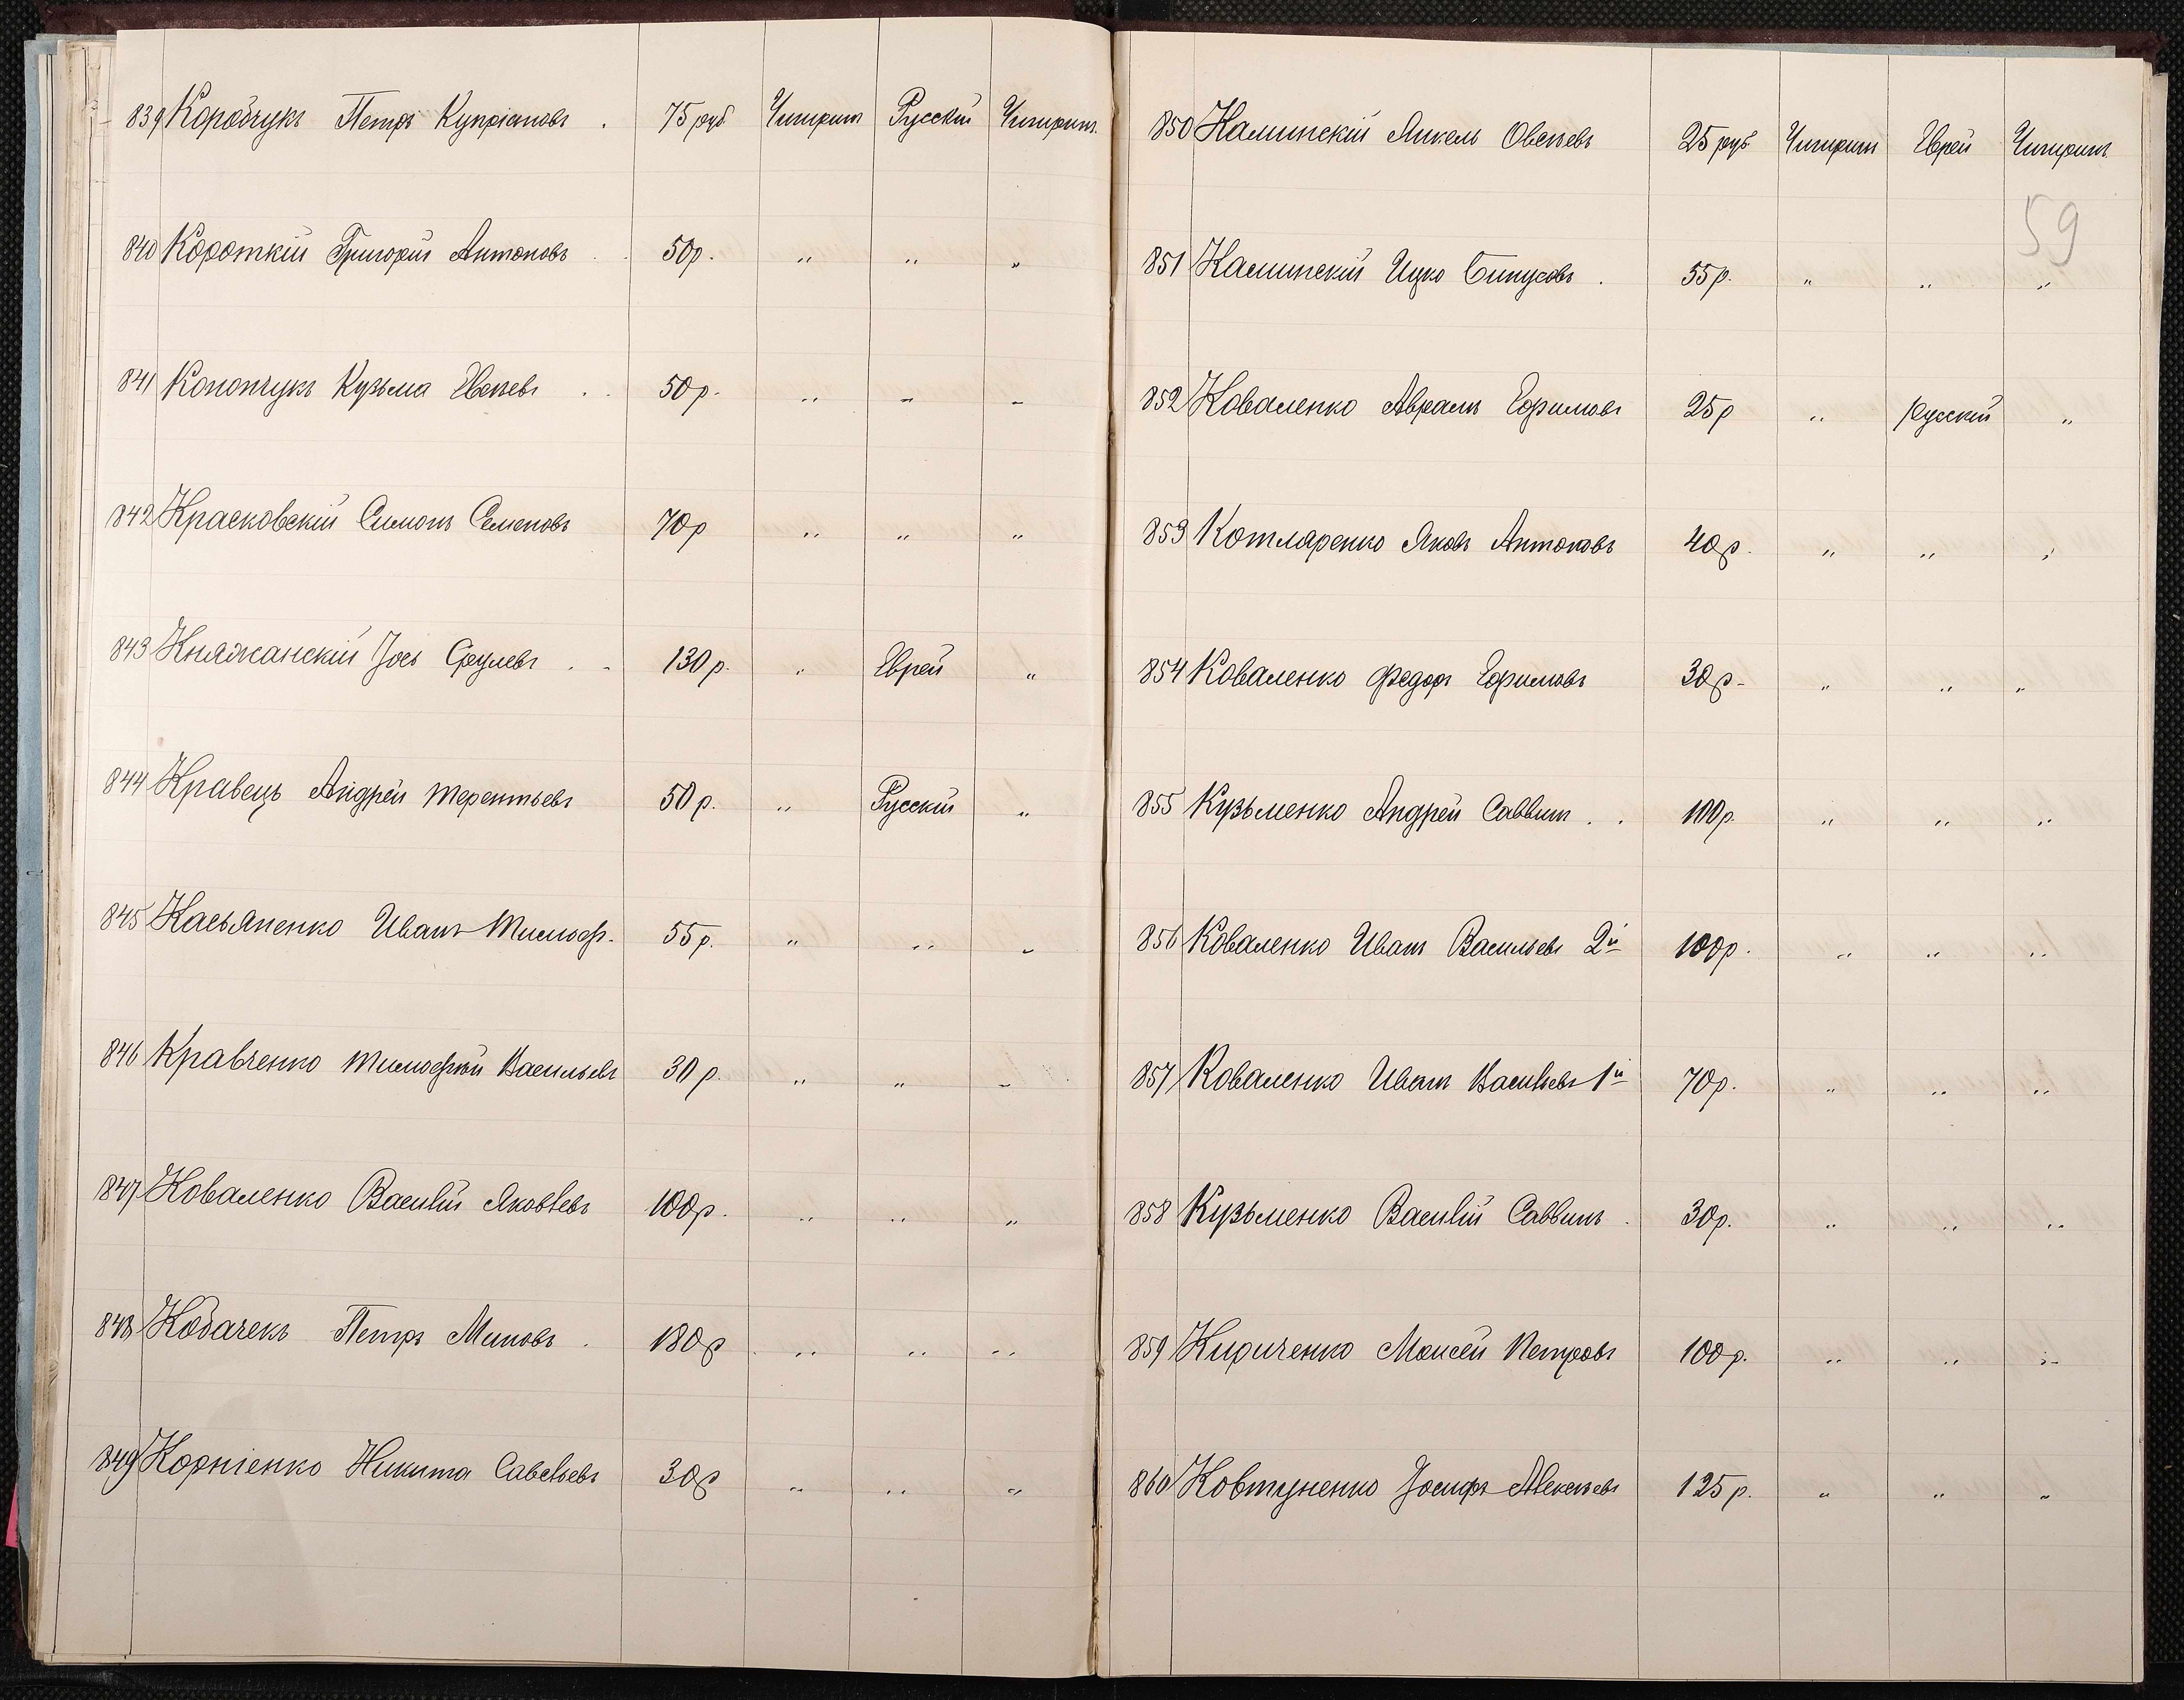 839 Коробчукъ Петръ Купріановъ . 75 руб Чигирин Русскій Чигирин.
840 Короткій Григорій Антоновъ . . 50р. " " "
841 Конончукъ Кузьма Евсѣевъ . . 50р. " " "
842 Красковскій Симонъ Семеновъ 70р " " "
843 Княжанскій Іось Срулевъ . . 130р. " Еврей "
844 Кравець Андрей Терентьевъ 50р. " Русскій "
845 Касьяненко Иванъ Тимоф. 55р. " " "
846 Кравченко Тимофѣй Васильевъ 30р. " " "
847 Коваленко Василій Яковлевъ 100р. " " "
848 Кобачекъ Петръ Миновъ . 180р " " "
849 Корніенко Никита Савельевъ 30р " " "
850 Калинскій Янкель Овсѣевъ 25 руб Чигирин Еврей Чигирин.
59
851 Калинскій Ицко Пинусовъ . 55р. " " "
852 Коваленко Авраамъ Ефимовъ 25р " Русскій "
853 Котляренко Яковъ Антоновъ 40р. " " "
854 Коваленко Федоръ Ефимовъ 30р. " " "
855 Кузьменко Андрей Саввинъ . . 100р. " " "
856 Коваленко Иванъ Васильевъ 2й 100р. " " "
857 Коваленко Иванъ Васильевъ 1й 70р. " " "
858 Кузьменко Василій Саввинъ . 30р. " " "
859 Кириченко Моисей Петровъ 100р. " " "
860 Ковтуненко Іосифъ Алексѣевъ 125р. " " "